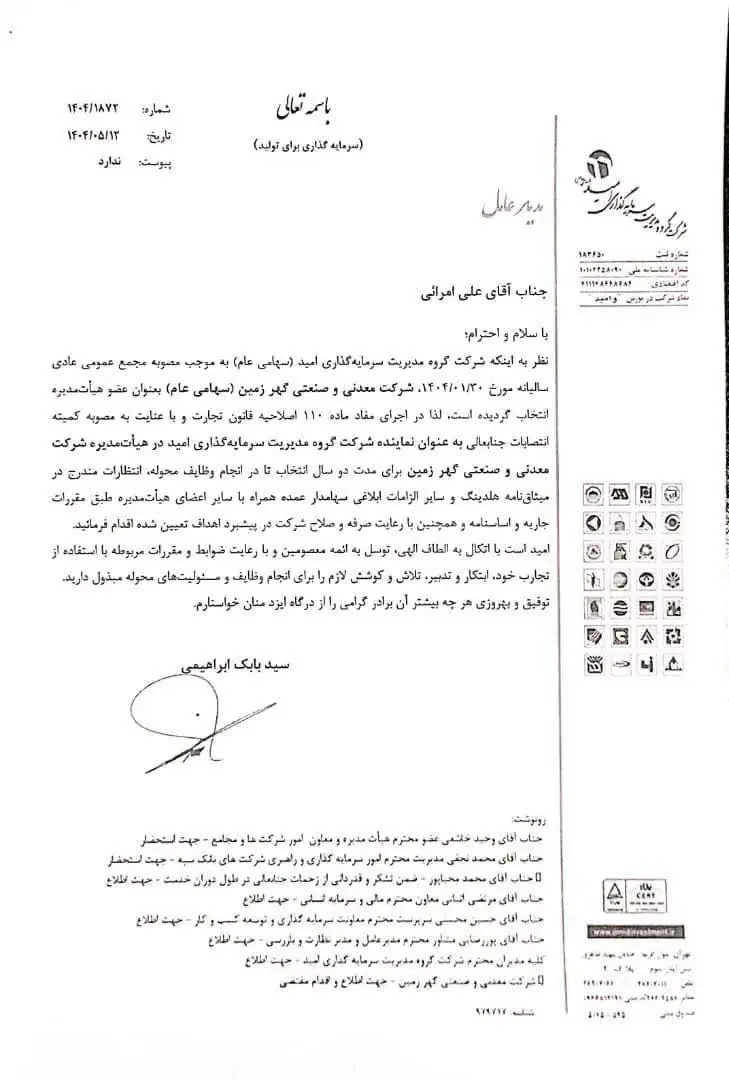 باسمه تعالی
(سرمایه گذاری برای تولید)
شماره: ۱۴۰۴/۱۸۷۲
تاریخ: ۱۴۰۴/۰۵/۱۲
پیوست: ندارد
شرکت گروه مدیریت سرمایه گذاری امید
شماره ثبت ۱۸۳۶۵۰
شماره شناسه ملی ۱۰۱۰۲۲۵۸۰۹۰
کد اقتصادی ۴۱۱۱۲۸۶۴۸۶۸۴
نماد شرکت در بورس وامید
مدیر عامل
جناب آقای علی امرائی
با سلام و احترام؛
نظر به اینکه شرکت گروه مدیریت سرمایه‌گذاری امید (سهامی عام) به موجب مصوبه مجمع عمومی عادی
سالیانه مورخ ۱۴۰۴/۰۱/۳۰، شرکت معدنی و صنعتی گهر زمین (سهامی عام) بعنوان عضو هیأت‌مدیره
انتخاب گردیده است، لذا در اجرای مفاد ماده ۱۱۰ اصلاحیه قانون تجارت و با عنایت به مصوبه کمیته
انتصابات جنابعالی به عنوان نماینده شرکت گروه مدیریت سرمایه‌گذاری امید در هیأت‌مدیره شرکت
معدنی و صنعتی گهر زمین برای مدت دو سال انتخاب تا در انجام وظایف محوله، انتظارات مندرج در
میثاق‌نامه هلدینگ و سایر الزامات ابلاغی سهامدار عمده همراه با سایر اعضای هیأت‌مدیره طبق مقررات
جاریه و اساسنامه و همچنین با رعایت صرفه و صلاح شرکت در پیشبرد اهداف تعیین شده اقدام فرمائید.
امید است با اتکال به الطاف الهی، توسل به ائمه معصومین و با رعایت ضوابط و مقررات مربوطه با استفاده از
تجارب خود، ابتکار و تدبیر، تلاش و کوشش لازم را برای انجام وظایف و مسئولیت‌های محوله مبذول دارید.
توفیق و بهروزی هر چه بیشتر آن برادر گرامی را از درگاه ایزد منان خواستارم.
سید بابک ابراهیمی
رونوشت:
جناب آقای وحید خاشعی عضو محترم هیأت مدیره و معاون امور شرکت ها و مجامع - جهت استحضار
جناب آقای محمد نجفی مدیریت محترم امور سرمایه گذاری و راهبری شرکت های بانک سپه - جهت استحضار
جناب آقای محمد محیاپور - ضمن تشکر و قدردانی از زحمات جنابعالی در طول دوران خدمت - جهت اطلاع
جناب آقای مرتضی معاون محترم مالی و سرمایه انسانی - جهت اطلاع
جناب آقای حسین محسنی سرپرست محترم معاونت سرمایه گذاری و توسعه کسب و کار - جهت اطلاع
جناب آقای پوررضایی مشاور محترم مدیرعامل و مدیر نظارت و بازرسی - جهت اطلاع
کلیه مدیران محترم شرکت گروه مدیریت سرمایه گذاری امید - جهت اطلاع
شرکت معدنی و صنعتی گهر زمین - جهت اطلاع و اقدام مقتضی
شناسه: ۹۷۹۷۱۷
CERT
www.omidinvestment.ir